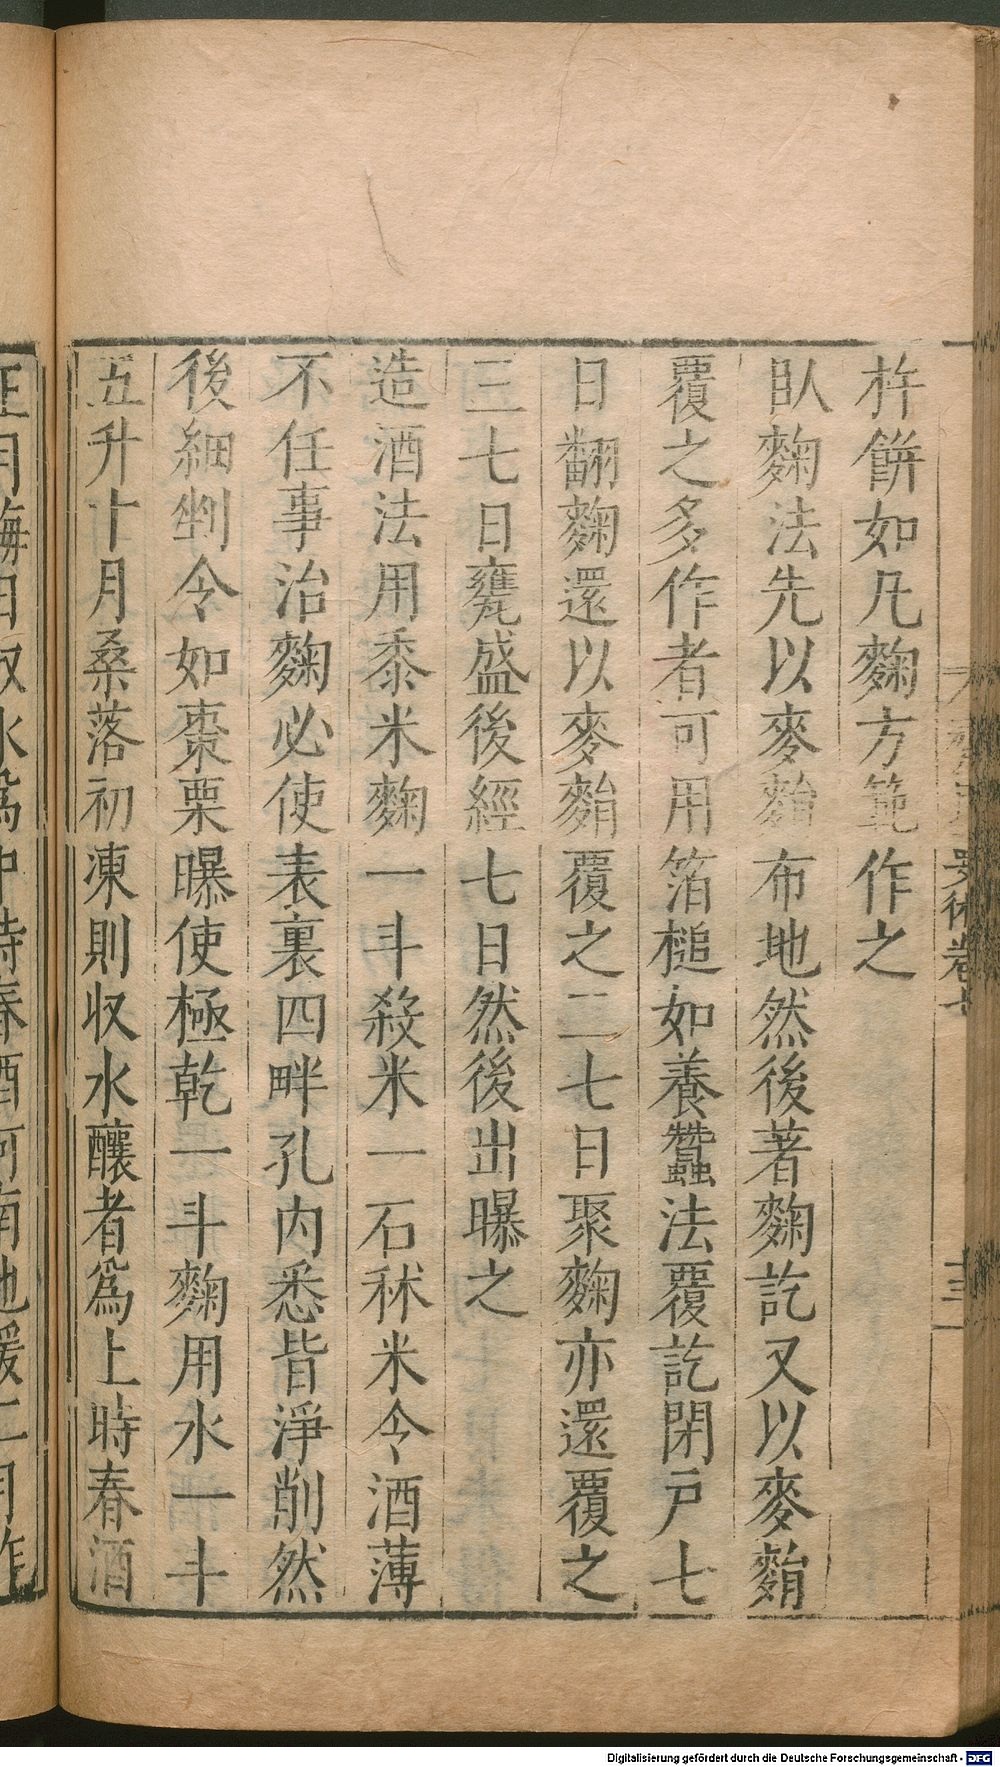 杵餅如凡麴方範作之
臥麴法先以麥䴷布地然後著麴訖又以麥䴷
覆之多作者可用箔槌如養蠶法覆訖閉戸七
日翻麴還以麥䴷覆之二七日聚麴亦還覆之
三七日甕盛後經七日然後出曝之
造酒法用黍米麴一斗殺米一石秫米令酒薄
不任事治麴必使表裏四畔孔内悉皆淨削然
後細剉令如棗栗曝使極乾一斗麴用水一斗
五升十月桑落初凍則収水釀者爲上時春酒
Digitalisierung gefördert durch die Deutsche Forschungsgemeinschaft - DFG